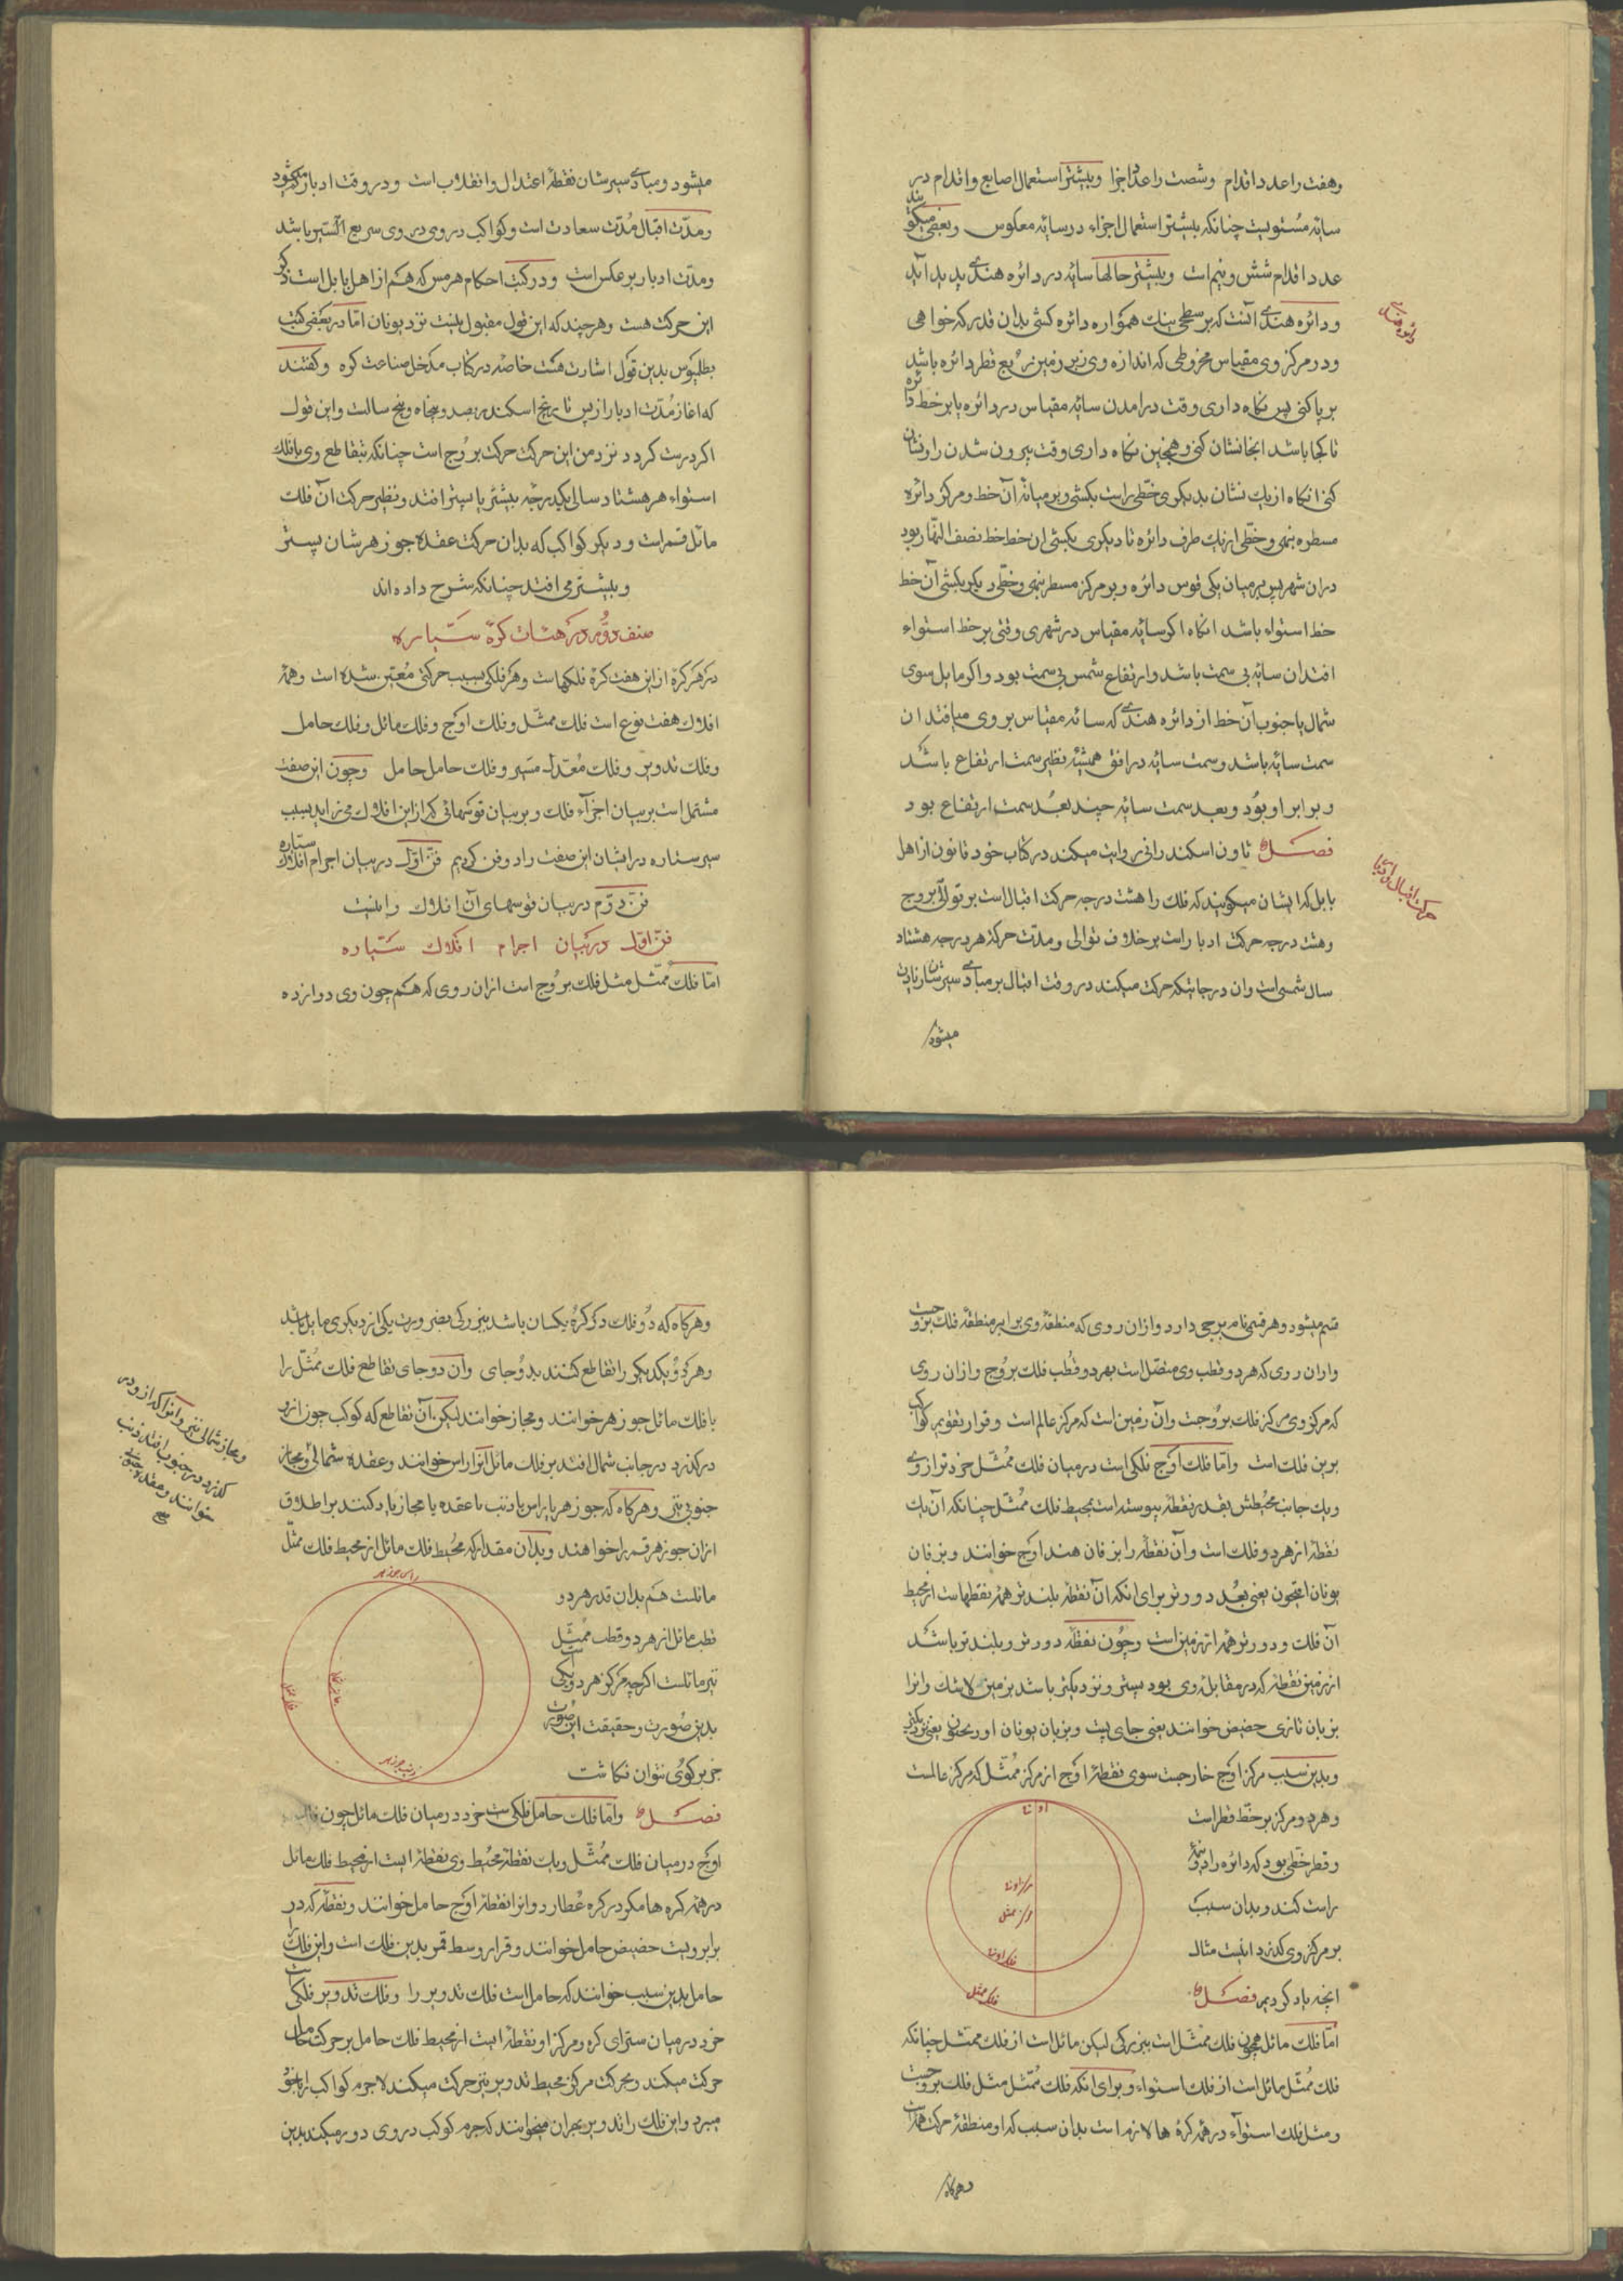 وهفت را عدد اقدام وشصت را عدد اجزا وبیشتر استعمال اصابع واقدام در
سایۀ مستویست چنانکه بیشتر استعمال اجزاء در سایۀ معکوس وبعضی میکویند
عدد اقدام شش ونیم است وبیشتر حالها سایه در دائره هندی پدید آید
ودائره هندی آنست که بر سطحی همواره دائره کشی بدان قدر که خواهی
دائره هندی
ودر مرکز وی مقیاس مخروطی که اندازه وی زبر زمین ربع قطر دائره باشد
بر پا کنی پس نکاه داری وقت درامدن سایه مقیاس در دائره یا بر خط دائره
تا کجا باشد انجا نشان کنی وهمچنین نکاه داری وقت بیرون شدن را ونشان
کنی انکاه از یک نشان بدیکری خطی راست بکشی وبر میانۀ آن خط ومرکز دائره
مسطره بنهی وخطی از یک طرف دائره تا دیکری بکشی ان خط خط نصف النهار بود
دران شهر پس بر میان یکی قوس دائره وبر مرکز مسطر بنهی وخطی دیکر بکشی آن خط
خط استواء باشد انکاه اکر سایه مقیاس در شهری وقتی بر خط استواء
افتد ان سایه بی سمت باشد وارتفاع شمس بی سمت بود واکر مایل سوی
شمال یا جنوب آن خط از دائره هندی که سایه مقیاس بر وی میافتد ان
سمت سایه باشد وسمت سایه در افق همیشه نظیر سمت ارتفاع باشد
وبرابر او بود وبعد سمت سایه چند بعد سمت ارتفاع بود
فصل ثاون اسکندرانی روایت میکند در کتاب خود قانون از اهل
حرکت اقبال وادبار
بابل که ایشان میکویند که فلک را هشت درجه حرکت اقبال است بر توالی بروج
وهشت درجه حرکت ادبار است بر خلاف توالی ومدت حرکة هر درجه هشتاد
سال شمسی است وان درجات که حرکت میکند در وقت اقبال بر مبادی سیرشان زیادت
میشود
میشود ومبادی سیرشان نقطۀ اعتدال وانقلاب است ودر وقت ادبار کم میشود
ومدت اقبال مدت سعادت است وکواکب در وی سریع السیر باشد
ومدت ادبار بر عکس است ودر کتب احکام هرمس که هم از اهل بابل است ذکر
این حرکت هست وهرچند که این قول مقبول نیست نزد یونان امّا در بعضی کتب
بطلیموس بدین قول اشارت هست خاصه در کتاب مدخل صناعت کره وکفتند
که اغاز مدت ادبار از پس تاریخ اسکندر بصد وپنجاه وپنج سالست واین قول
اکر درست کردد نزد من این حرکت حرکت بروج است چنانکه بتقاطع وی با فلک
استواء هر هشتاد سالی یکدرجه بیشتر یا پستر افتد ونظیر حرکت آن فلک
مائل قمر است ودیکر کواکب که بدان حرکت عقدۀ جوزهرشان پستر
وبیشتر می افتد چنانکه شرح داده اند
صنف دوّم در هیئات کرۀ سیّاره
در هر کرۀ از این هفت کره فلکهاست وهر فلکی سبب حرکتی معیّن شده است وهمه
افلاک هفت نوع است فلک ممثّل وفلک اوج وفلک مائل وفلک حامل
وفلک تدویر وفلک معدل مسیر وفلک حامل حامل وچون این صفت
مشتمل است بر بیان اجزآء فلک وبر بیان قوسهائی که از این افلاک می زاید بسبب
سیر ستاره در ایشان این صفت را دو فن کردیم فنّ اوّل در بیان اجرام افلاک ستاره
فنّ دوّم در بیان قوسهای آن افلاک واینست
فنّ اوّل در بیان اجرام افلاک سیّاره
امّا فلک ممثّل مثل فلک بروج است ازان روی که هم چون وی دوازده
قسم میشود وهر قسمی نام برجی دارد وازان روی که منطقۀ وی برابر منطقۀ فلک بروجست
وازان روی که هر دو قطب وی متصل است بهر دو قطب فلک بروج وازان روی
که مرکز وی مرکز فلک بروجست وآن زمین است که مرکز عالم است وقرار تقویم کواکب
برین فلک است وامّا فلک اوج فلکی است در میان فلک ممثّل خرد تر از وی
ویک جانب محیطش بقدر نقطه پیوسته است بمحیط فلک ممثّل چنانکه آن یک
نقطه از هر دو فلک است وآن نقطه را بزفان هند اوج خوانند وبزفان
یونان افیجون یعنی بعد دورتر برای انکه آن نقطه بلندتر همه نقطهاست از محیط
آن فلک ودورتر همه از زمین است وچون نقطۀ دورتر وبلندتر باشد
از زمین نقطۀ که در مقابل وی بود پستر ونزدیکتر باشد بزمین لاشک وانرا
بزبان تازی حضیض خوانند یعنی جای پست وبزبان یونان یعنی نزدیکتر
وبدین سبب مرکز اوج خارجست سوی نقطۀ اوج از مرکز ممثّل که مرکز عالمست
وهر دو مرکز بر خط قطر است
وقطر خطی بود که دائره را دو نیمۀ
راست کند وبدان سبب
بر مرکز وی کذرد اینست مثال
انچه یاد کردیم فصل
مرکز ممثل
فلک ممثل
امّا فلک مائل همچون فلک ممثّل است ببزرکی لیکن مائل است از فلک ممثّل چنانکه
فلک ممثّل مائل است از فلک استواء وبرای انکه فلک ممثّل مثل فلک بروجست
ومثل فلک استوآء در همه کره ها لازم است بدان سبب که او منطقۀ حرکت
وهرکاه
وهرکاه که دو فلک در کرۀ یکسان باشد ببزرکی بضرورت یکی از دیکری مایل باشد
وهر دو یکدیکر را تقاطع کنند بدو جای وآن دو جای تقاطع فلک ممثّل را
با فلک مائل جوزهر خوانند ومجاز خوانند لیکن آن تقاطع که کوکب چون ازو
در کذرد در جانب شمال افتد بر فلک مائل آنرا راس خوانند وعقدۀ شمالی ومجاز
جنوبی نیز وهرکاه که جوزهر یا راس یا ذنب یا عقده یا مجاز یاد کنند بر اطلاق
ومجاز شمالی نیز وانرا که از و در
کذرد در جنوب افتد ذنب
خوانند وعقدۀ جنوبی
صح
ازان جوزهر قمر را خواهند وبدان مقدار که محیط فلک مائل از محیط فلک ممثّل
مائلست هم بدان قدر هر دو
قطب مائل از هر دو قطب ممثّل
نیز مائلست اکرچه مرکز هر دو یکیست
بدین صورت وحقیقت این صورت
جز بر کوی نتوان نکاشت
راس جوزهر
ذنب جوزهر
فصل وامّا فلک حامل فلکی است خرد در میان فلک مائل چون فلک
اوج در میان فلک ممثّل ویک نقطۀ محیط وی نقطۀ است از محیط فلک مائل
در همه کره ها مکر در کره عطارد وانرا نقطۀ اوج حامل خوانند ونقطۀ که در
برابر ویست حضیض حامل خوانند وقرار وسط قمر بدین فلک است واین فلک را
حامل بدین سبب خوانند که حامل است فلک تدویر را وفلک تدویر فلکی است
خرد در میان ستبرای کره ومرکز او نقطۀ است از محیط فلک حامل بر حرکت حامل
حرکت میکند وبحرکت مرکز محیط تدویر نیز حرکت میکند لاجرم کواکب را با خود
میبرد واین فلک را تدویر بهر ان میخوانند که جرم کوکب در وی دور میکند بدین